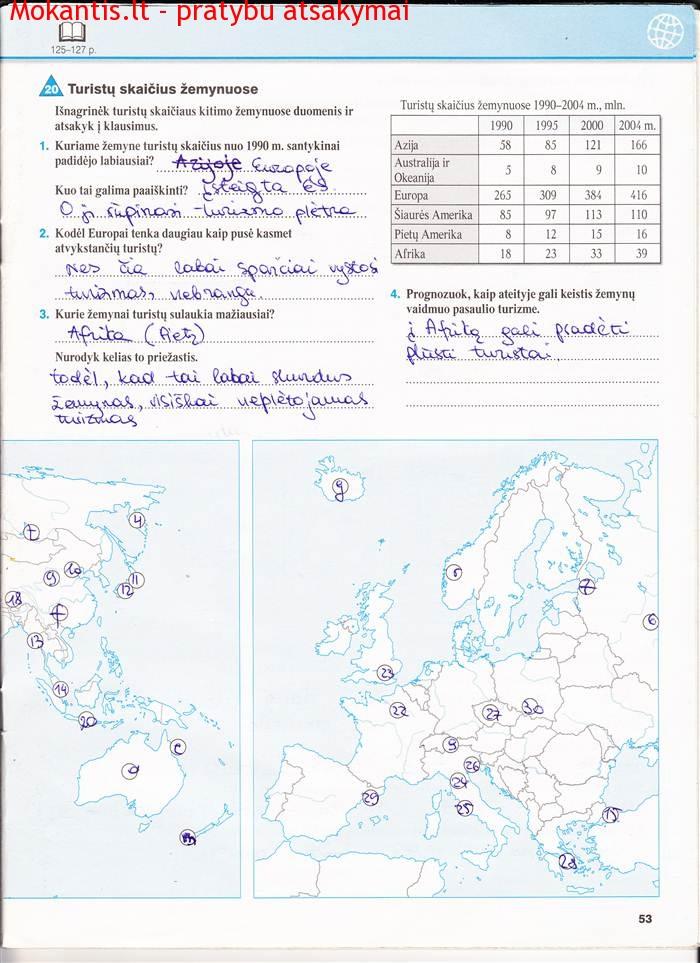 Mokantis.lt - pratybu atsakymai
125–127 p.
20 Turistų skaičius žemynuose
Išnagrinėk turistų skaičiaus kitimo žemynuose duomenis ir
atsakyk į klausimus.
1. Kuriame žemyne turistų skaičius nuo 1990 m. santykinai
padidėjo labiausiai? Azijoje Europoje
Kuo tai galima paaiškinti? Įsteigta ES.
O ji rūpinasi turizmo plėtra
2. Kodėl Europai tenka daugiau kaip pusė kasmet
atvykstančių turistų?
Nes čia labai sparčiai vystosi
turizmas, nebrangu.
3. Kurie žemynai turistų sulaukia mažiausiai?
Afrika (Pietų)
Nurodyk kelias to priežastis.
todėl, kad tai labai skurdus
žemynas, visiškai neplėtojamas
turizmas
Turistų skaičius žemynuose 1990–2004 m., mln.
1990 1995 2000 2004 m.
Azija 58 85 121 166
Australija ir
Okeanija 5 8 9 10
Europa 265 309 384 416
Šiaurės Amerika 85 97 113 110
Pietų Amerika 8 12 15 16
Afrika 18 23 33 39
4. Prognozuok, kaip ateityje gali keistis žemynų
vaidmuo pasaulio turizme.
į Afriką gali pradėti
plūsti turistai.
4
9
10
11
12
18
f
13
14
20
c
d
g
7
6
23
22
27
30
26
24
25
29
15
28
53